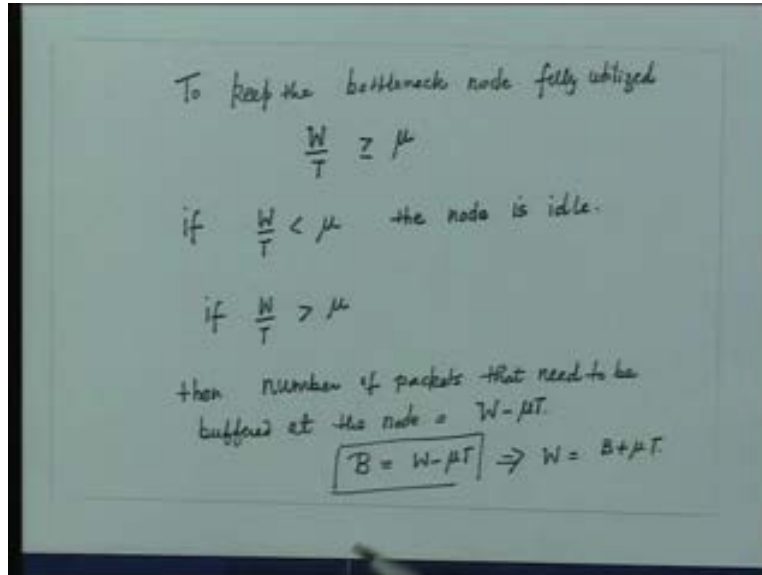 To keep the bottleneck node fully utilized
W/T ≥ μ
if W/T < μ the node is idle.
if W/T > μ
then number of packets that need to be
buffered at the node = W-μT.
B = W-μT ⇒ W = B+μT.